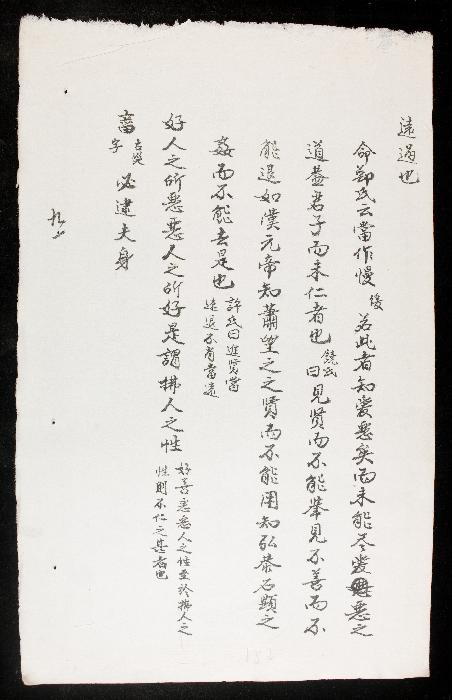 遠過也
命鄭氏云當作慢 後 若此者知爱惡矣而未能尽爱惡之
道蓋君子而未仁者也 饒氏曰 見贤而不能举見不善而不
能退如漢元帝知蕭望之之贤而不能用知弘恭石顯之
姦而不能去是也 許氏曰進贤當
遠退不肖當遠
好人之所惡惡人之所好是謂拂人之性 好善惡惡人之性至於拂人之
性則不仁之甚者也
菑 古災
字 必逮夫身
152